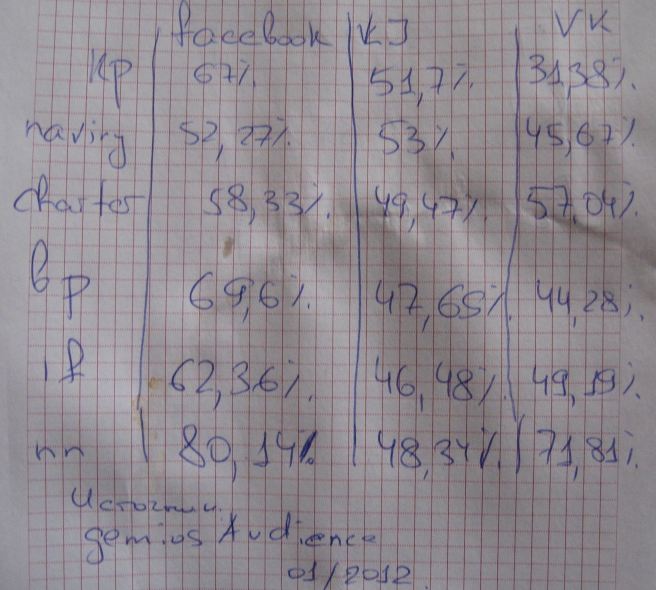 facebook VK
kp 67% 51,7% 31,38%
naviny 52,27% 53% 45,67%
charter 58,33% 49,47% 57,04%
bp 69,6% 47,65% 44,28%
62,36% 46,48% 49,19%
nn 80,14% 48,34% 71,81%
Источник
gemius Audience
01/2012